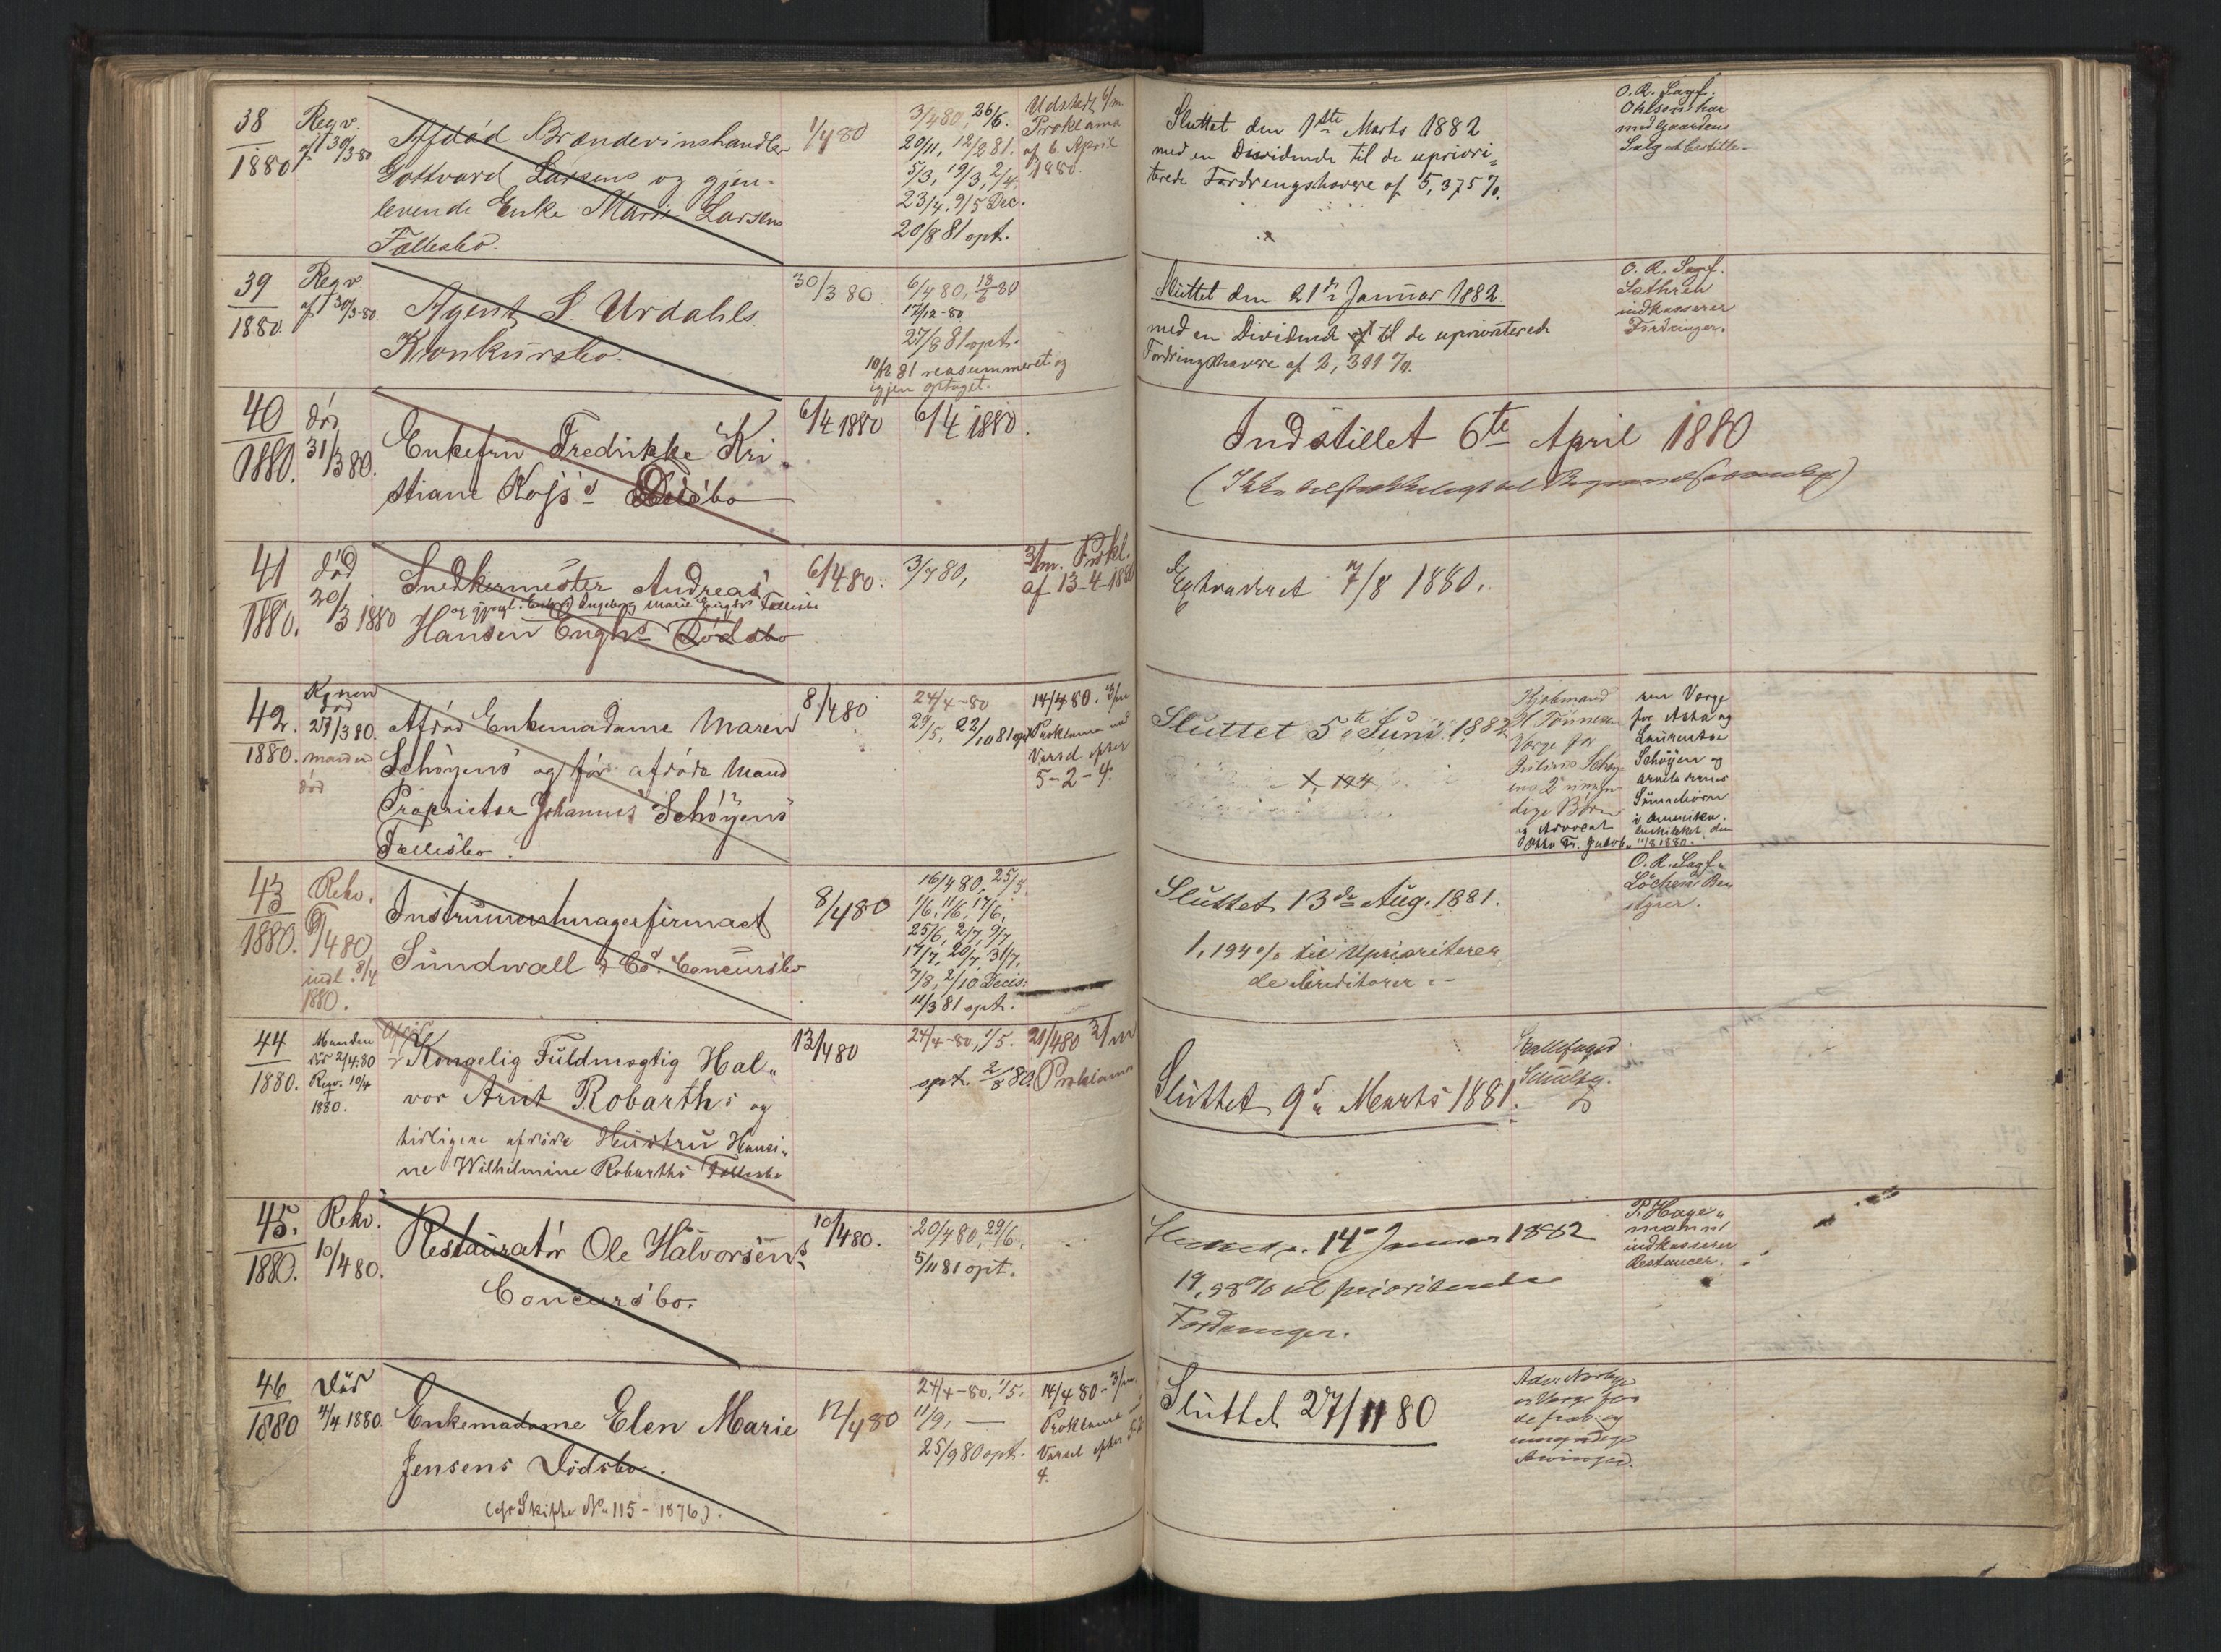 38
1880
Reqv.
af 30/3-80.
Afdød Brændevinshandler
Gottvard Larsens og gjen-
levende Enke Marie Larsens
Fællesbo.
1/4 80
3/4 80, 26/6.
20/11, 12/2 81.
5/3, 19/3, 2/4,
23/4. 9/5 Dec.
20/8 81 opt.
Udstedt 6/m.
Proklama
af 6. April
1880.
Sluttet den 1ste Marts 1882
med en Dividende til de upriori-
terede Fordringshavere af 5,375 %.
O. R. Sagf.
Ohlsen har
med Gaardens
Salg at bestille.
39
1880.
Reqv.
af 30/3-80.
Agent S. Urdahls
Konkursbo.
30/3 80.
6/4 80, 18/6 80
17/12-80
27/8 81 opt.
10/12 81 reasummeret og
igjen optaget.
Sluttet den 21de Januar 1882.
med en Dividende til de uprioriterede
Fordringshavere af 2,311 %.
O. R. Sagf.
Sothren
indkasserer
Fordringer.
40
1880.
död
31/3 80.
Enkefru Fredrikke Kri-
stiane Kojs's Dödsbo
6/4 1880
6/4 1880.
Indstillet 6te April 1880
41
1880.
död
20/3 1880
Snedkermester Andreas
og gjenl. Enke Ingeborg Marie Enghs Fællesbo
Hansen Enghs Dödsbo
6/4 80.
3/7 80,
3/m. Prokl.
af 13-4-1880
Extraderet 7/8 1880.
42.
1880.
Konen
död
27/3 80.
manden
död
Afdöd Enkemadame Maren
Schöyens og før afdøde Mand
Proprietær Johannes Schöyens
Fællesbo.
8/4 80
24/4-80
29/5, 22/10 81 opt
14/4 80. 3/m
Proklama med
Varsel efter
5-2-4.
Sluttet 5te Juni 1882
Kjøbmand
Tönnesen
Værge for
dige Børn
og Advokat
em Værge
for Asta og
Schöyen og
i Amerika.
11/8 1880.
43
1880.
Rekv.
8/4 80
indl. 8/4
1880.
Instrumentmagerfirmaet
Sundwall & Co. Concursbo
8/4 80
16/4 80, 25/5.
1/6, 11/6, 17/6,
25/6, 2/7, 9/7
17/7, 20/7, 31/7,
7/8, 2/10 Decis:
11/3 81 opt.
Sluttet 13de Aug. 1881.
1,194 % til Uprioritere-
de Creditorer.-
O. R. Sagf.
Löchen Be-
styrer.
44
1880.
Manden
död 2/4.80
Reqv. 10/4
1880.
Kongelig Fuldmægtig Hal-
vor Arnt Robarths og
tidligere afdöde Hustru Hansi-
ne Wilhelmine Robarths Fællesbo
13/4 80
24/4-80, 1/5.
opt. 2/8 80.
21/4 80 3/m
Proklama
Sluttet 9de Marts 1881.
45.
1880.
Rekv.
10/4 80.
Restauratör Ole Halvorsens
Concursbo.
10/4 80.
20/4 80, 29/6.
5/11 81 opt.
Sluttet d. 14de Januar 1882
19,98 % til prioriterede
Fordringer.
P. Hage-
mann
indkasserer
Restancer.
46
1880
Död
4/4 1880.
Enkemadame Elen Marie
Jensens Dödsbo.
(cfr Skifte No 115 - 1876).
12/4 80
24/4-80. 1/5.
11/9, —
25/9 80 opt.
14/4 80 - 3/m.
Proklama
Varsel efter
4.
Sluttet 27/11 80
er Værge for
de frav. og
umyndige
Arvinger.